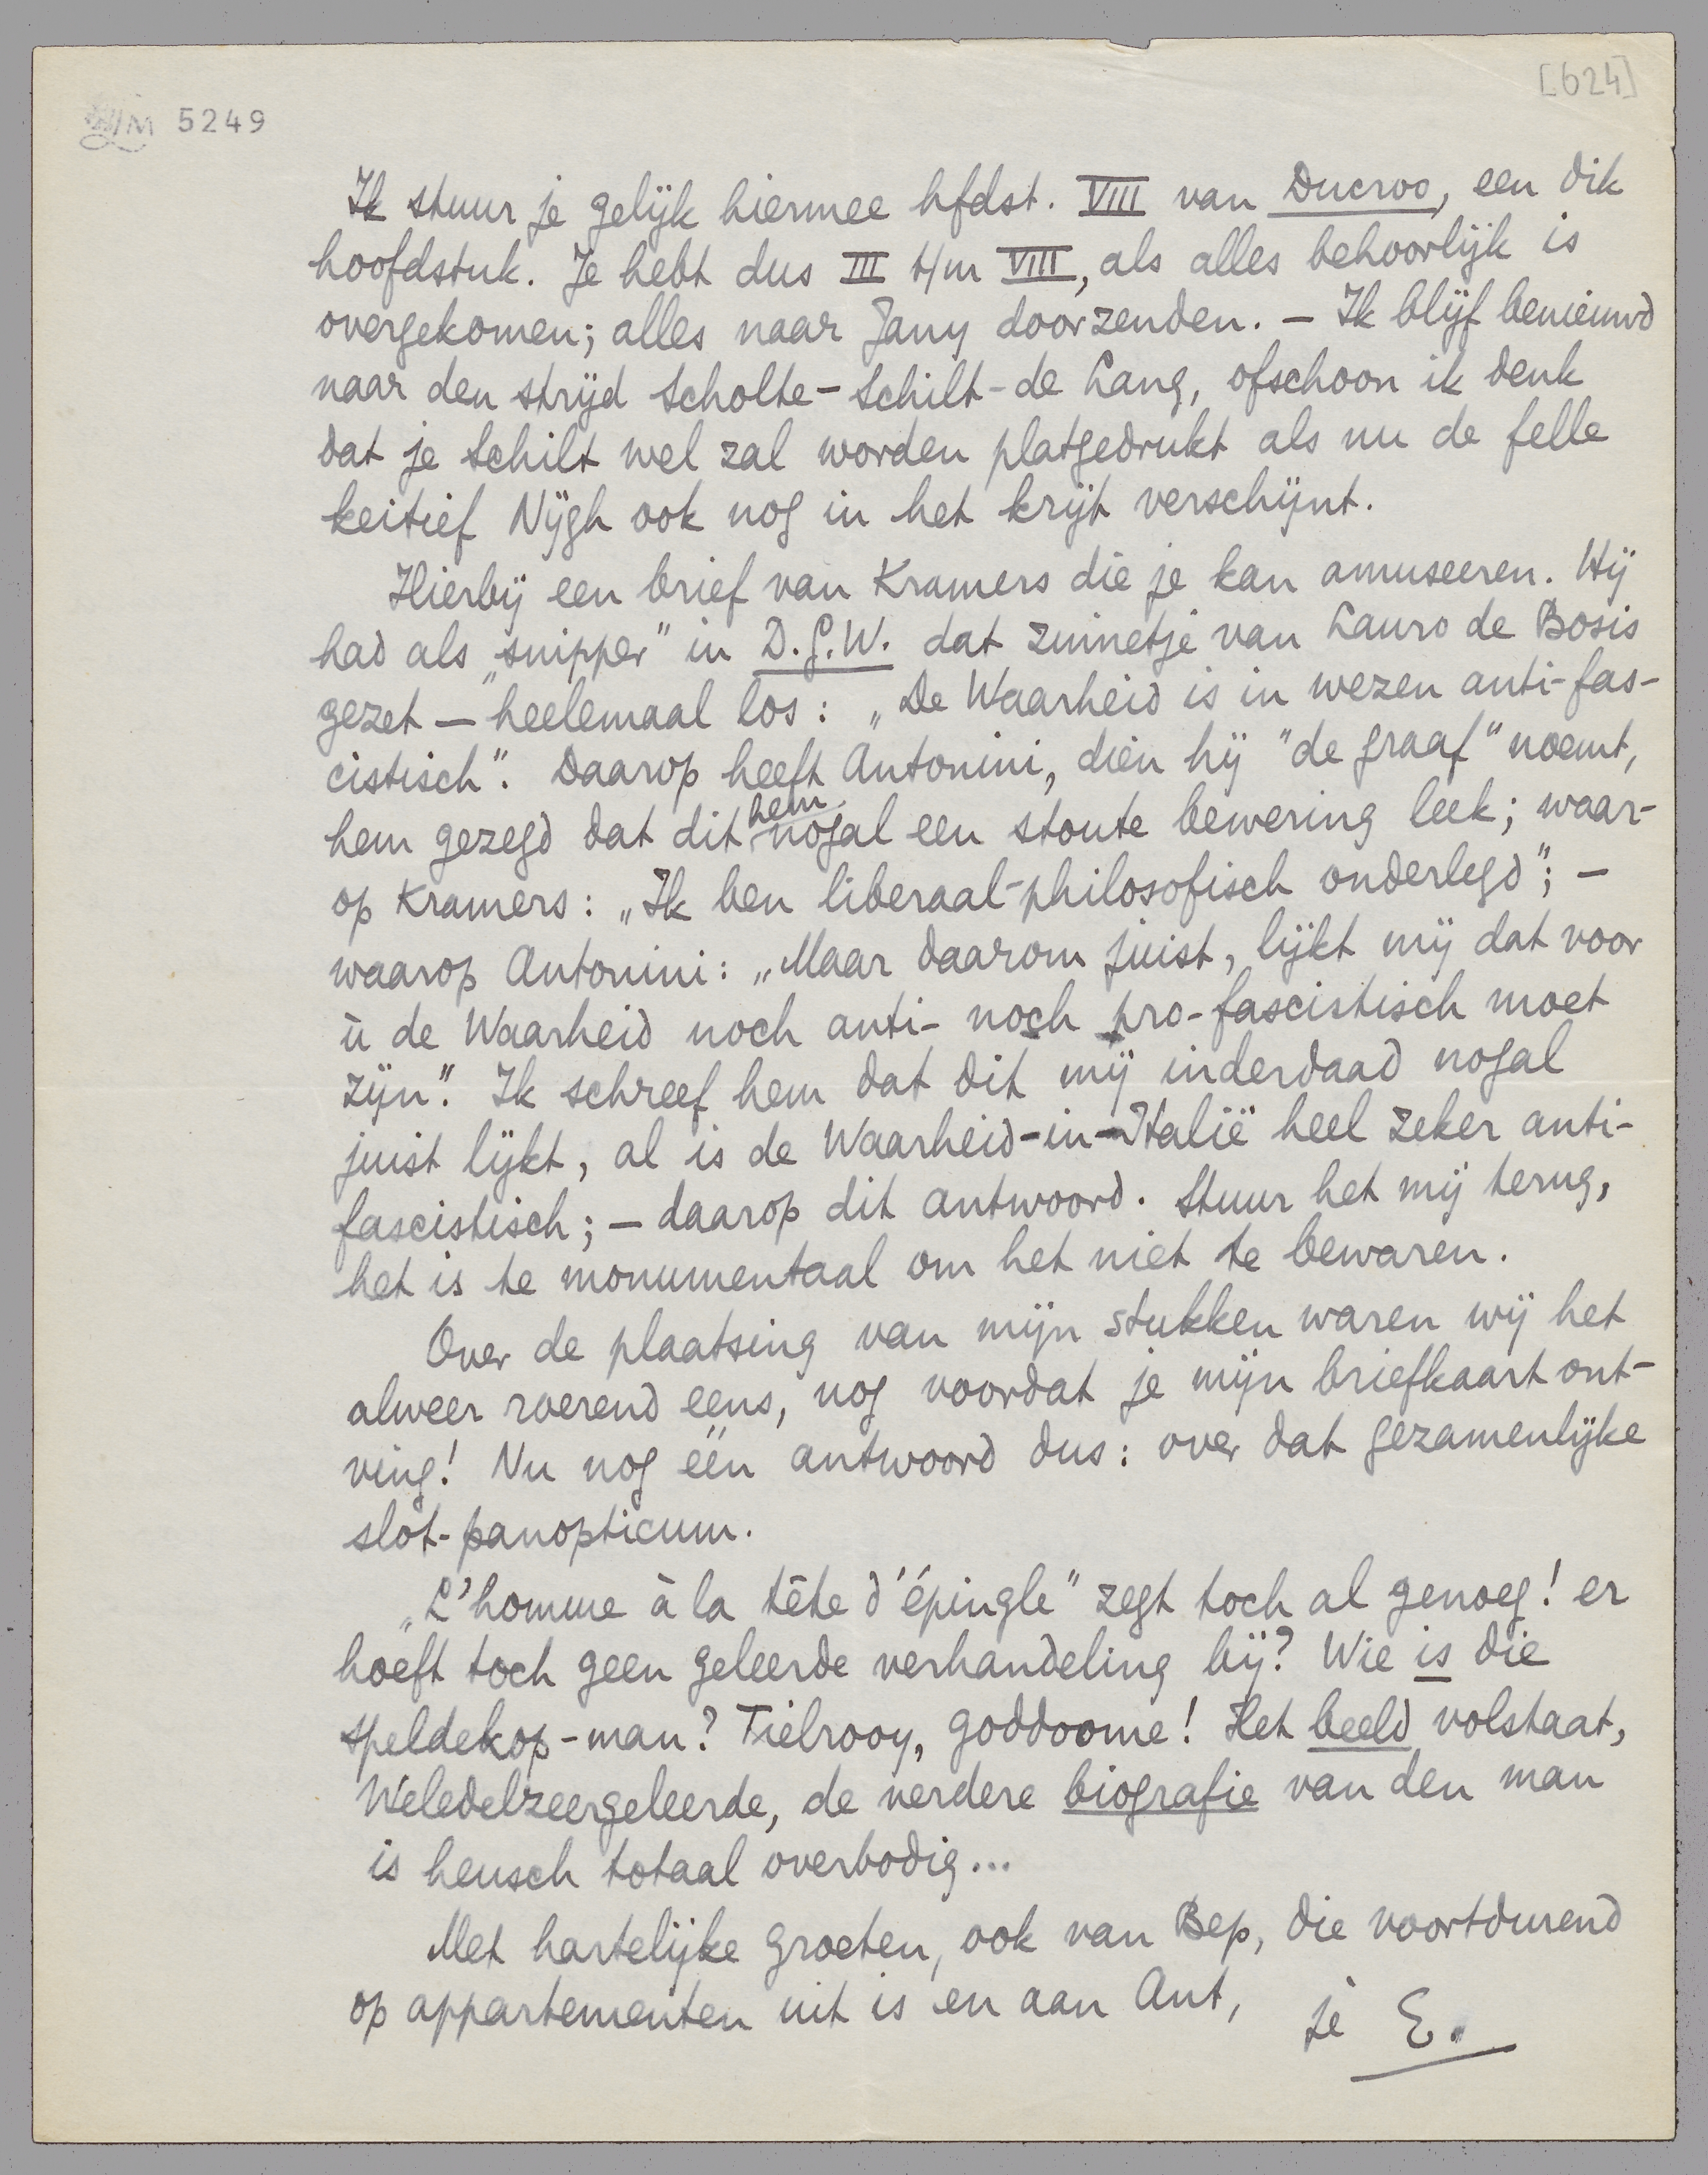 [624]
5249
Ik stuur je gelijk hiermee hfdst. VIII van Ducroo, een dik
hoofdstuk. Je hebt dus III t/m VIII, als alles behoorlijk is
overgekomen; alles naar Jany doorzenden. – Ik blijf benieuwd
naar den strijd Scholte-Schilt-de Lang, ofschoon ik denk
dat je Schilt wel zal worden platgedrukt als nu de felle
keitief Nijgh ook nog in het krijt verschijnt.
Hierbij een brief van Kramers die je kan amuseeren. Hij
had als „snipper” in D.G.W. dat zinnetje van Lauro de Bosis
gezet – heelemaal los: „De Waarheid is in wezen anti-fas-
cistisch”. Daarop heeft Antonini, dien hij "de graaf" noemt,
hem gezegd dat dit hem nogal een stoute bewering leek; waar-
op Kramers: „Ik ben liberaal-philosofisch onderlegd”; –
waarop Antonini: „Maar daarom juist, lijkt mij dat voor
ù de Waarheid noch anti- noch pro-fascistisch moet
zijn”. Ik schreef hem dat dit mij inderdaad nogal
juist lijkt, al is de Waarheid-in-Italië heel zeker anti-
fascistisch; – daarop dit antwoord. Stuur het mij terug,
het is te monumentaal om het niet te bewaren.
Over de plaatsing van mijn stukken waren wij het
alweer roerend eens, nog voordat je mijn briefkaart ont-
ving! Nu nog één antwoord dus: over dat gezamenlijke
slot-panopticum.
„L'homme à la tête d'épingle” zegt toch al genoeg! er
hoeft toch geen geleerde verhandeling bij? Wie is die
speldekop-man? Tielrooy, goddoome! Het beeld volstaat,
Weledelzeergeleerde, de verdere biografie van den man
is heusch totaal overbodig...
Met hartelijke groeten, ook van Bep, die voortdurend
op appartementen uit is en aan Ant,
je E.